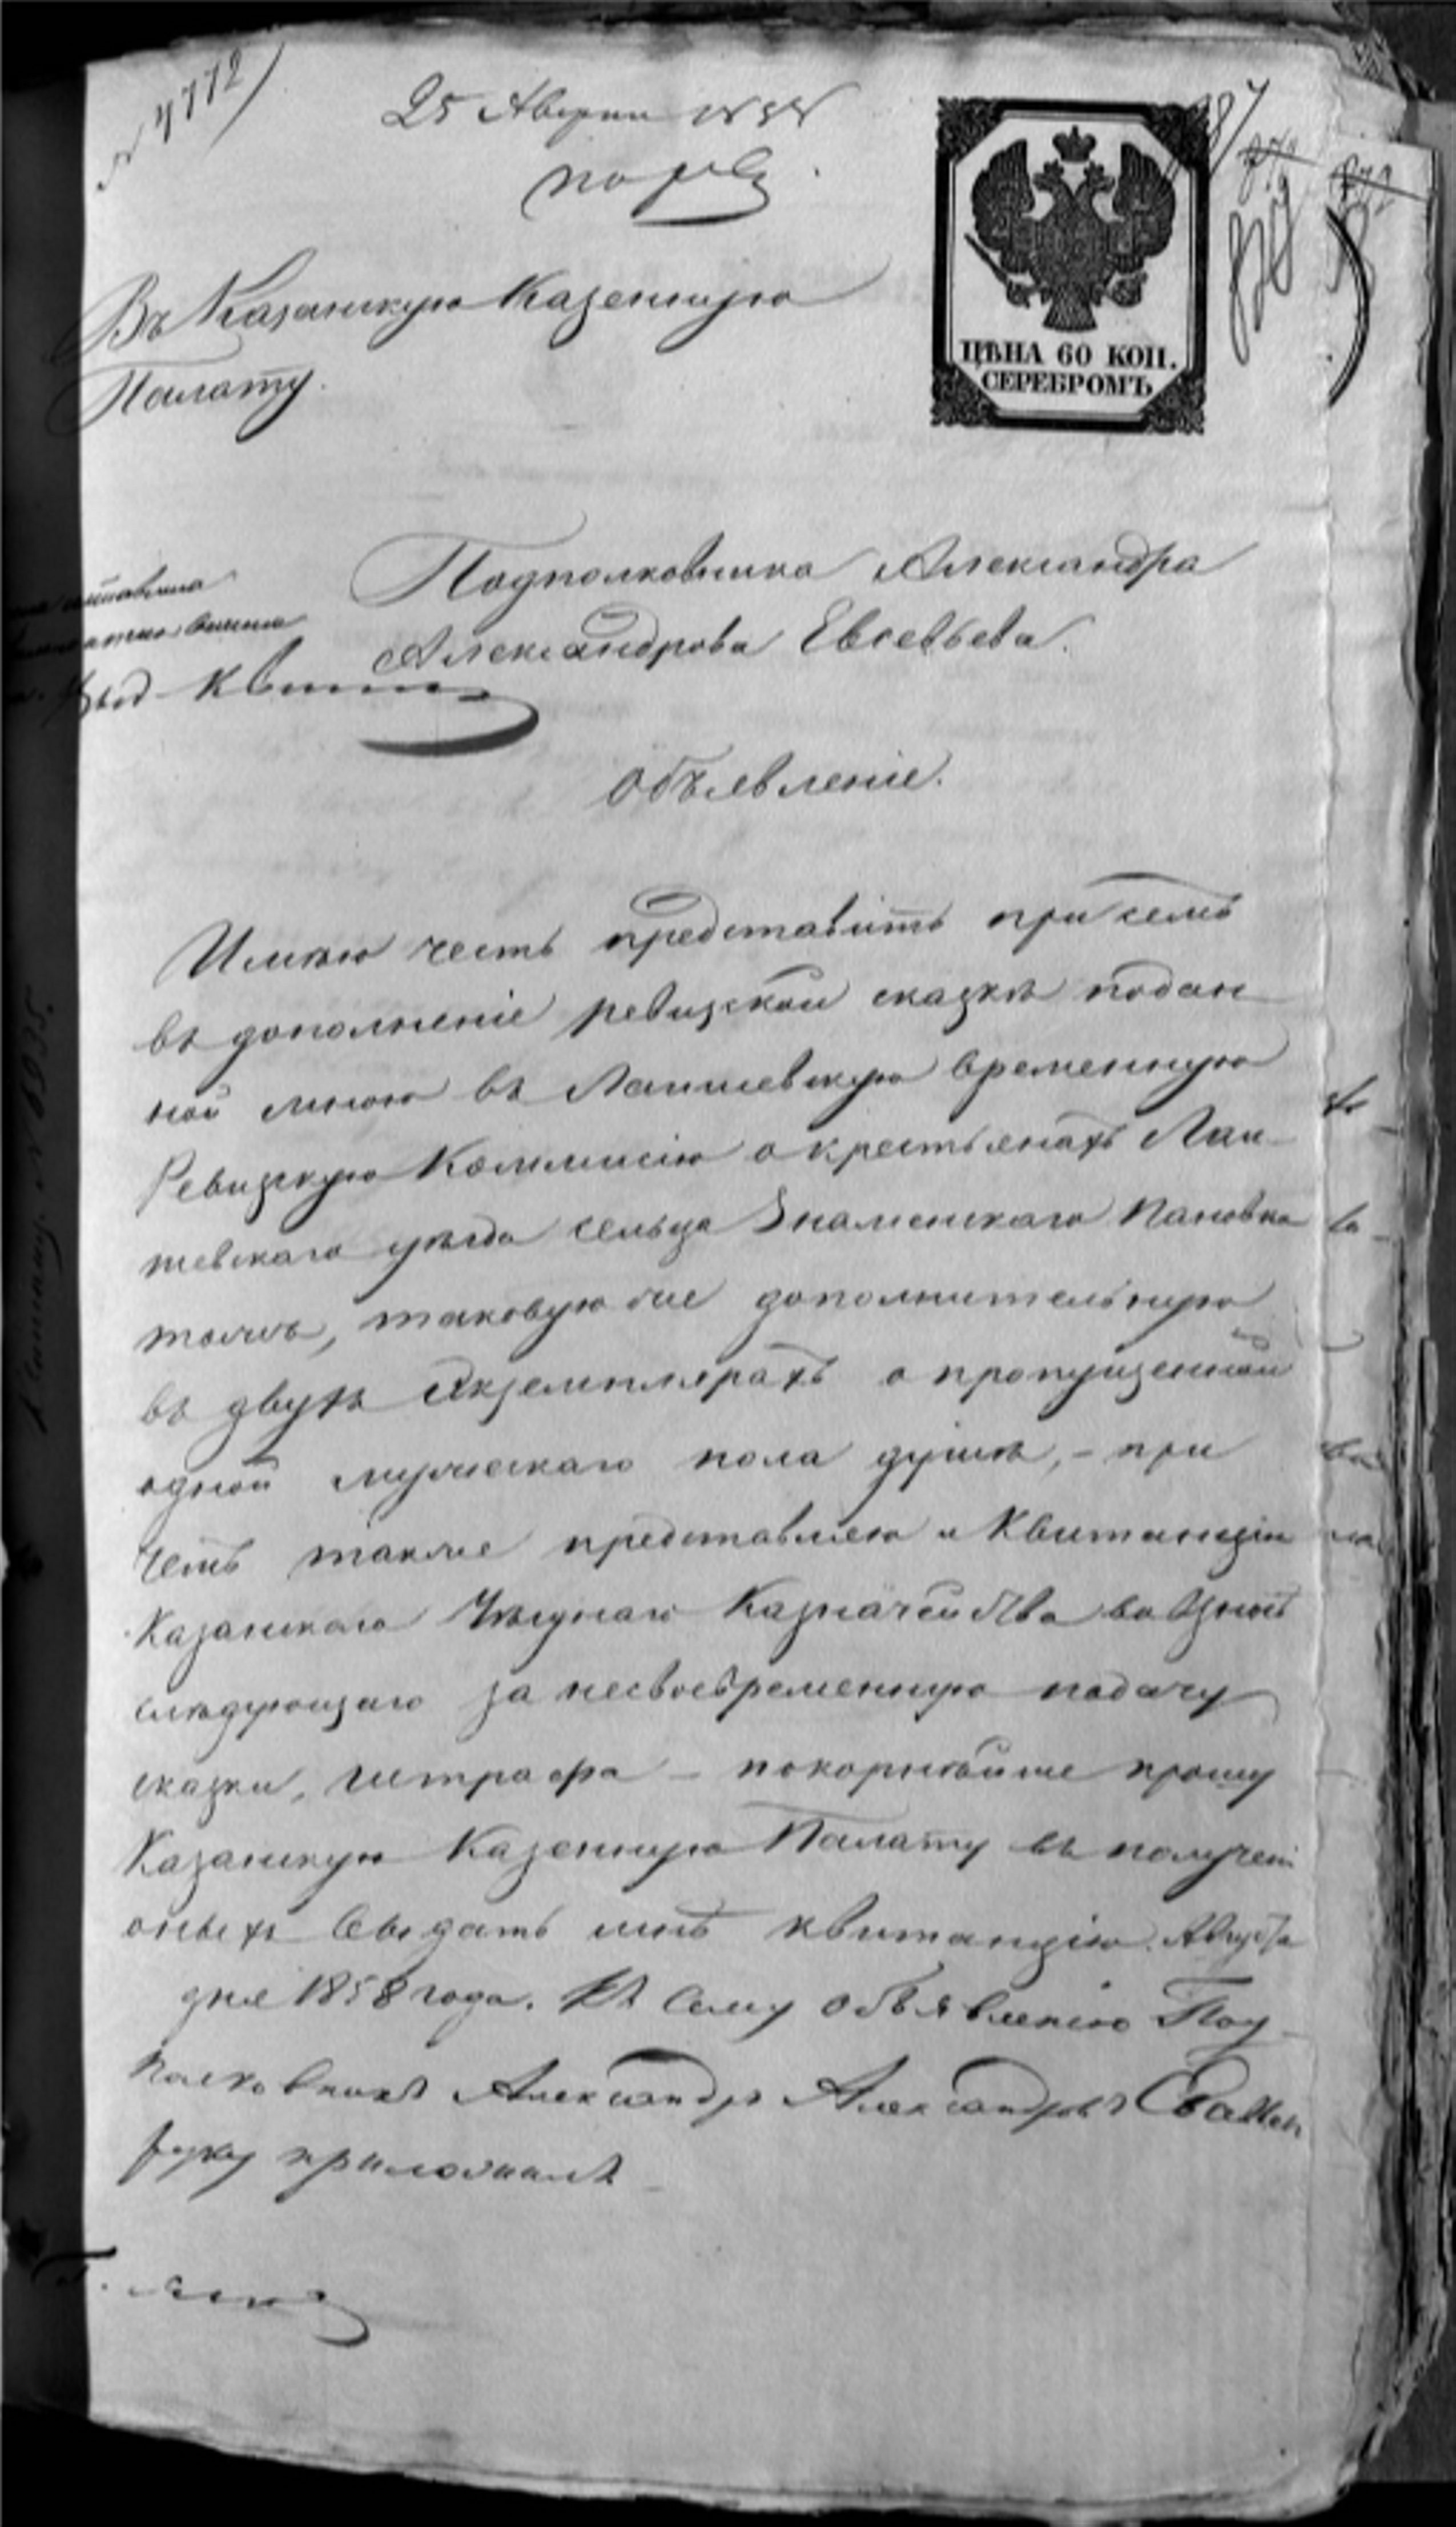 N 4772
25 Августа 1858
Въ Казанскую Казенную
Палату.
ЦѢНА 60 КОП.
СЕРЕБРОМЪ
Подполковника Александра
Александрова Евсевьева.
Объявленіе.
Имѣю честь представить при семъ
въ дополненіе ревизской сказкѣ подан-
ной мною въ Лаишевскую временную
Ревизскую Коммисію о крестьянахъ Лаи-
шевскаго уѣзда сельца Знаменскаго Пановка
тожъ, таковую же дополнительную
въ двухъ экземплярахъ о пропущенной
одной мужескаго пола душѣ, - при
чемъ также представляю и Квитанцію
Казанскаго Уѣзднаго Казначейства во взносѣ
слѣдующаго за несвоевременную подачу
сказки, штрафа - покорнѣйше прошу
Казанскую Казенную Палату въ полученіи
оныхъ выдать мнѣ квитанцію. Августа
дня 1858 года. Къ сему объявленію Под-
полковникъ Александръ Александровъ
руку приложилъ